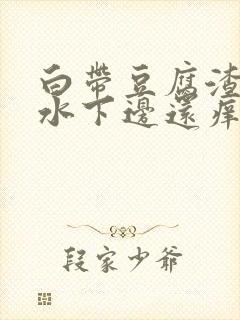 白帶豆腐渣
水下邊還痒
段家少爺